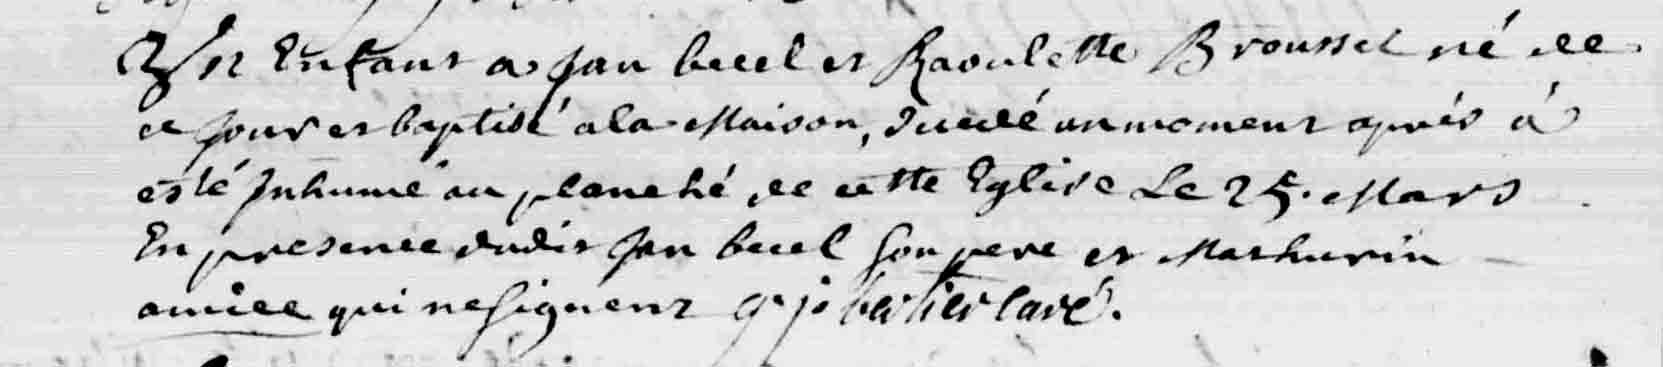 Un Enfant a Jan becel et Raoulette Brousset né de
ce jour et baptisé a la Maison, décédé un moment aprés á
esté Inhumé au planché de cette Eglise Le 25. Mars
En presence dudit Jan becel son pere et Mathurin
amice qui ne signent berthier curé.